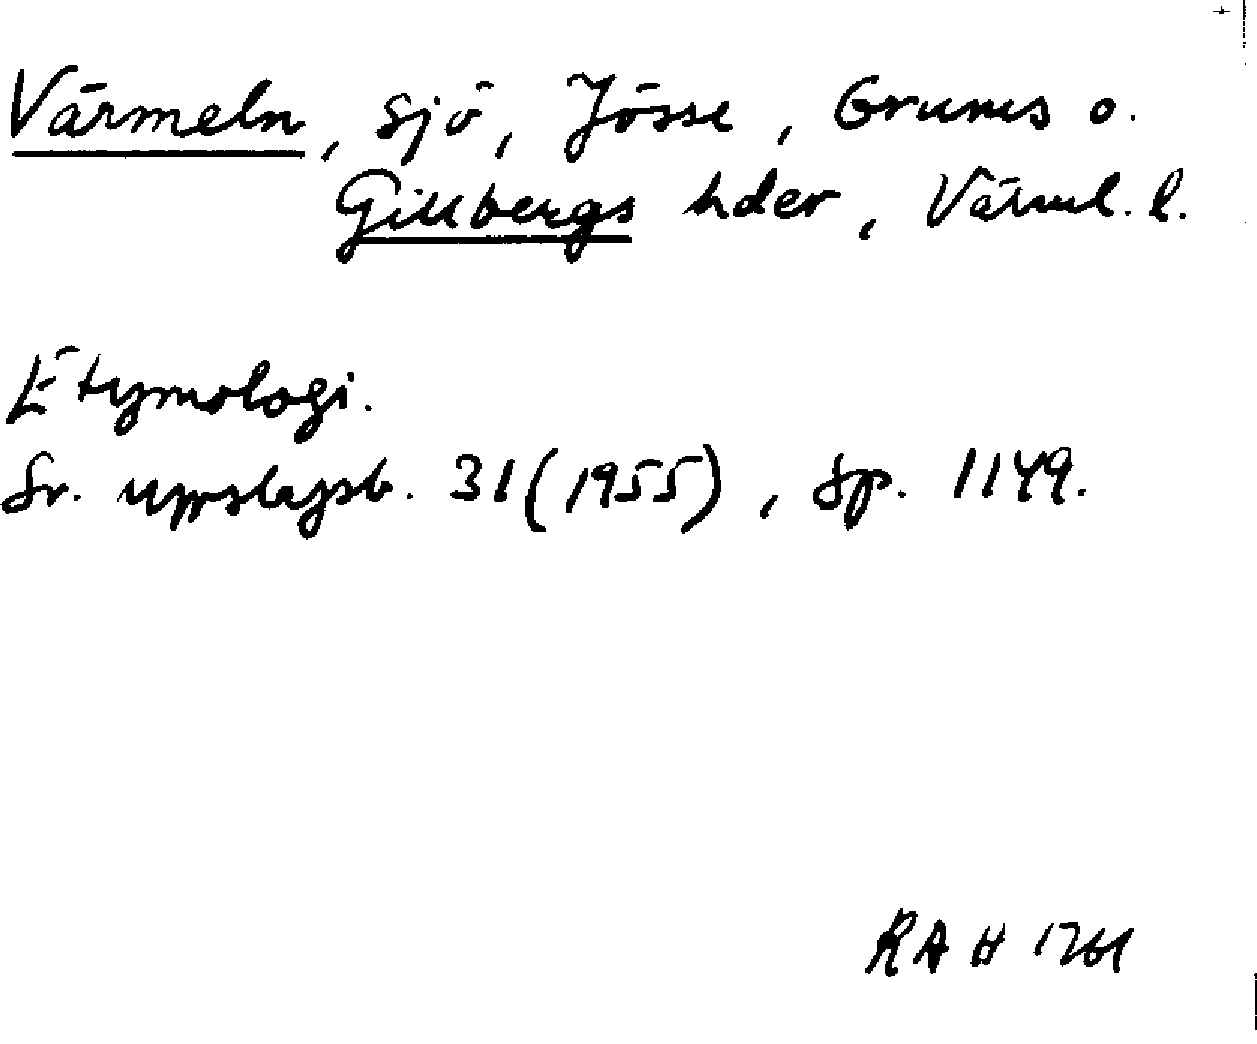 Värmeln, sjö, Jösse, Grums o.
Gillbergs hder, Värml. l.
Etymologi.
Sv. uppslagsb. 31 (1955), sp. 1149.
RAH